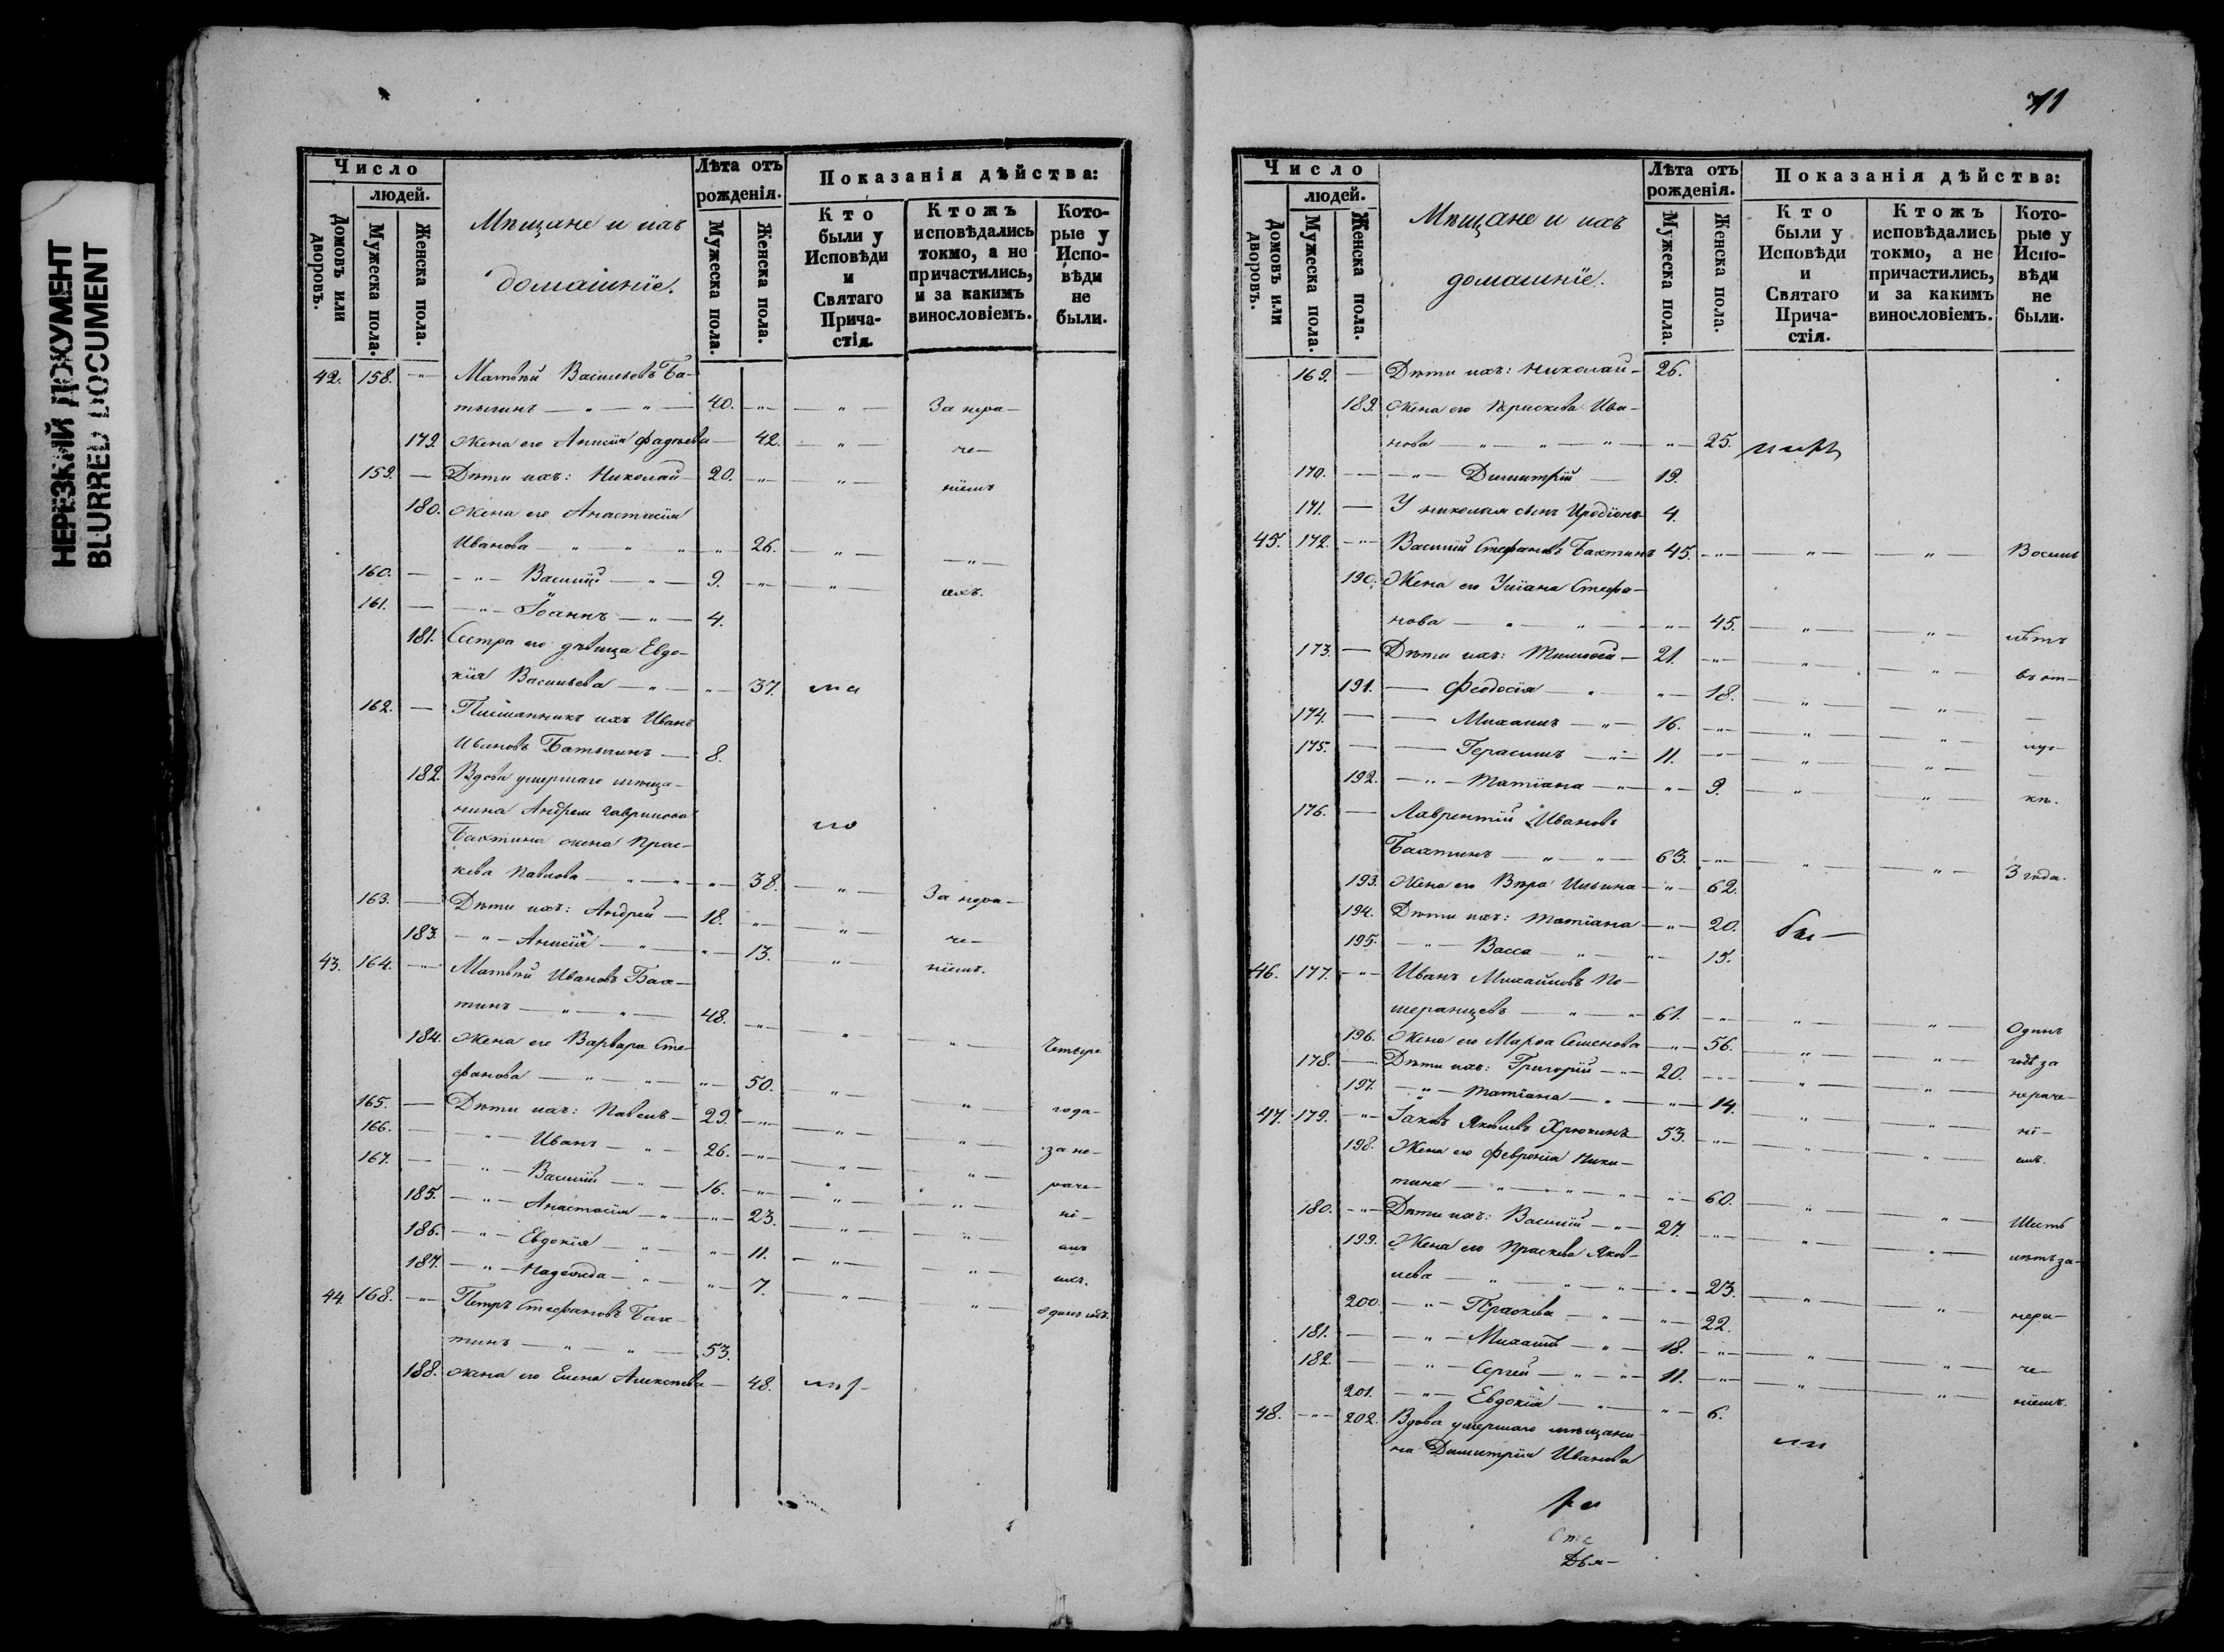 НЕРЕЗКИЙ ДОКУМЕНТ
BLURRED DOCUMENT
Число
людей.
Домовъ или дворовъ.
Мужеска пола.
Женска пола.
Мѣщане и ихъ
домашніе.
Лѣта отъ рожденія.
Мужеска пола.
Женска пола.
Показанія дѣйства:
Кто были у Исповѣди и Святаго Прича-стія.
Ктожъ исповѣдались токмо, а не причастились, и за какимъ винословіемъ.
Кото-рые у Испо-вѣди не были.
42. 158. -"- Матвѣй Васильевъ Ба-
тычинъ — " — " — 40. -"- — " — За нера-
179. Жена его Анисія Фадѣева — 42. — " — че-
159. — Дѣти ихъ: Николай — 20. -"- — " — ніемъ
180. Жена его Анастасія
Иванова — " — " — " " — 26. — " — — " —
160. — — " — Василій — " — 9. -"- — " — ихъ.
161. — — " — Іоаннъ — " — 4.
181. Сестра его дѣвица Евдо-
кія Васильева — " — " — 37.
162. — Племянникъ ихъ Иванъ
Ивановъ Батычинъ — 8.
182. Вдова умершаго мѣща-
нина Андрея Гаврилова
Бахтина жена Прас-
кева Павлова — " — " — " — 38. — " — За нера-
163. — Дѣти ихъ: Андрей — 18. -"- — " — че-
183. — " — Анисія — " — " — 13. — " — ніемъ.
43. 164. -"- Матвѣй Ивановъ Бах-
тинъ — " — " — 48. -"- — " — — " — Четыре
184. Жена его Варвара Сте-
фанова — " — " — " — 50. — " — — " — года
165. — Дѣти ихъ: Павелъ — 29. -"- — " — — " — за не-
166. — — " — Иванъ — " — 26. -"- — " — — " — раче-
167. — — " — Василій — " — 16. -"- — " — — " — ні-
185. — " — Анастасія — " — " — 23. — " — — " — емъ
186. — " — Евдокія — " — " — 11. — " — — " — ихъ.
187. — " — Надежда — " — " — 7. — " — — " — одинъ годъ.
44. 168. -"- Петръ Стефановъ Бах-
тинъ — " — " — 53.
188. Жена его Елена Алексѣева — 48.
11
Число
людей.
Домовъ или дворовъ.
Мужеска пола.
Женска пола.
Мѣщане и ихъ
домашніе.
Лѣта отъ рожденія.
Мужеска пола.
Женска пола.
Показанія дѣйства:
Кто были у Исповѣди и Святаго Прича-стія.
Ктожъ исповѣдались токмо, а не причастились, и за какимъ винословіемъ.
Кото-рые у Испо-вѣди не были.
169. — Дѣти ихъ: Николай — 26.
189. Жена его Прискева Ива-
нова — " — " — " — " — 25.
170. — — " — Димитрій — 19.
171. — У Николая сынъ Иродіонъ — 4.
45. 172. -"- Василій Стефановъ Бахтинъ 45. -"- — " — — " — Восемь
190. Жена его Уліана Стефа-
нова — " — " — " — 45. — " — — " — лѣтъ
173. — Дѣти ихъ: Тимофей — 21. -"- — " — — " — въ от-
191. — Феодосія — " — 18. — " — — " —
174. — — Михаилъ — " — 16. -"- — " — — " — луч-
175. — — Герасимъ — " — 11. -"- — " — — " —
192. — " — Татіана — " — " — 9. — " — — " — кѣ.
176. — Лаврентій Ивановъ
Бахтинъ — " — " — 63. -"- — " — — " — 3 года.
193. Жена его Вѣра Ильина — " — 62.
194. Дѣти ихъ: Татіана — " — 20.
195. — " — Васса — " — " — 15.
46. 177. -"- Иванъ Михайловъ По-
меранцевъ — " — " 61. -"- — " — — " — Одинъ
196. Жена его Марѳа Семенова — " — 56. — " — — " — годъ за
178. — Дѣти ихъ: Григорій — " — 20. -"- — " — — " — нераче-
197. — " — Татіана — " — " — 14. — " — — " — ні-
47. 179. -"- Іаковъ Яковлевъ Хрюкинъ 53. -"- — " — — " — емъ.
198. Жена его Февронія Ники-
тина — " — " — " — " — 60. — " — — " — Шесть
180. -"- Дѣти ихъ: Василій — " — 27. -"- — " — — " — лѣтъ за
199. Жена его Праскева Яков-
лева — " — " — " — " — 23. — " — — " — нера-
200. — " — Праскева — " — " — 22.
181. — — " — Михаилъ — " — 18. -"- — " — — " — че-
182. — — " — Сергей — " — 11. -"- — " — — " — ніемъ.
201. — " — Евдокія — " — " — 6.
48. -"- 202. Вдова умершаго мѣщани-
на Димитрія Иванова